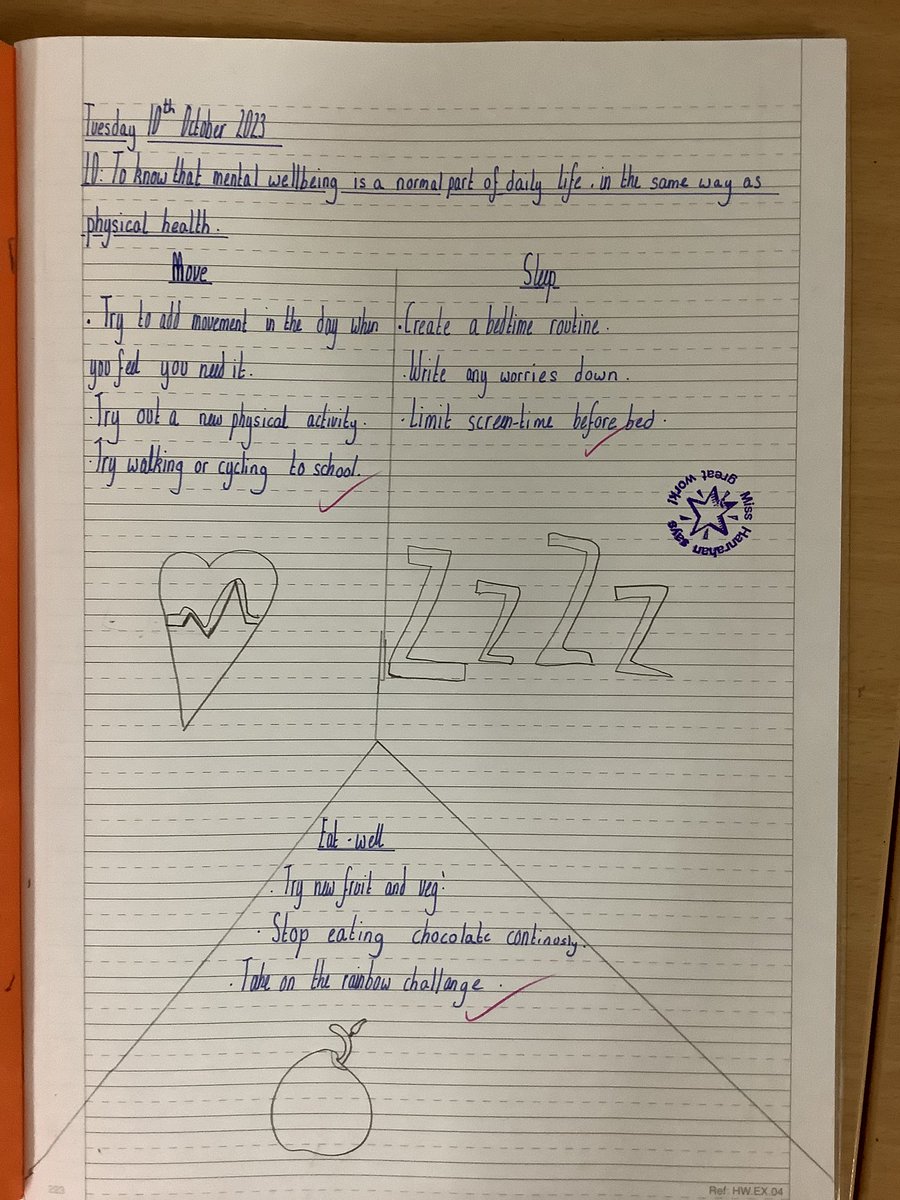 Tuesday 10th October 2023
LO: To know that mental wellbeing is a normal part of daily life, in the same way as
physical health.
Move
· Try to add movement in the day when
you feel you need it.
· Try out a new physical activity.
· Try walking or cycling to school.
Sleep
· Create a bedtime routine.
· Write any worries down.
· Limit screen-time before bed.
Miss Hanrahan says great work!
ZzZz
Eat-well
· Try new fruit and veg.
· Stop eating chocolate continosly.
· Take on the rainbow challange.
223
Ref: HW.EX.04